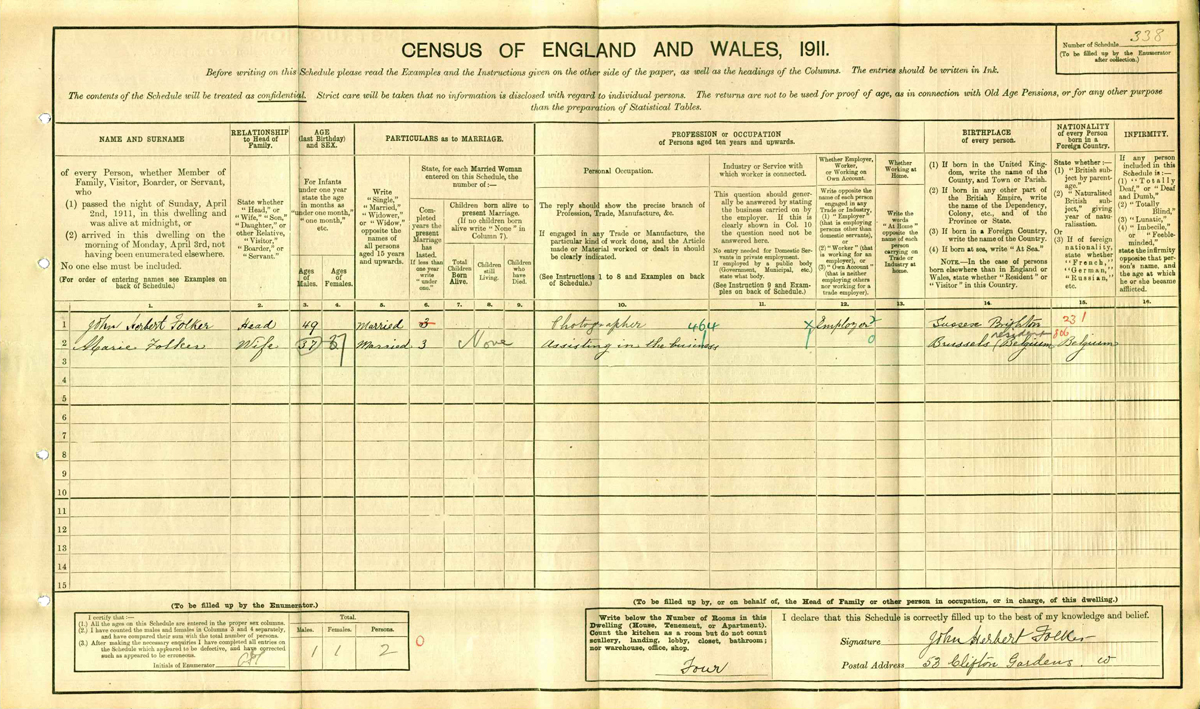 CENSUS OF ENGLAND AND WALES, 1911.
Number of Schedule 338
(To be filled up by the Enumerator
after collection.)
Before writing on this Schedule please read the Examples and the Instructions given on the other side of the paper, as well as the headings of the Columns. The entries should be written in Ink.
The contents of the Schedule will be treated as confidential. Strict care will be taken that no information is disclosed with regard to individual persons. The returns are not to be used for proof of age, as in connection with Old Age Pensions, or for any other purpose
than the preparation of Statistical Tables.
NAME AND SURNAME
of every Person, whether Member of
Family, Visitor, Boarder, or Servant,
who
(1) passed the night of Sunday, April
2nd, 1911, in this dwelling and
was alive at midnight, or
(2) arrived in this dwelling on the
morning of Monday, April 3rd, not
having been enumerated elsewhere.
No one else must be included.
(For order of entering names see Examples on
back of Schedule.)
RELATIONSHIP
to Head of
Family.
State whether
"Head," or
"Wife," "Son,"
"Daughter," or
other Relative,
"Visitor,"
"Boarder," or
"Servant."
AGE
(last Birthday)
and SEX.
For Infants
under one year
state the age
in months as
"under one month,"
"one month,"
etc.
Ages
of
Males.
Ages
of
Females.
PARTICULARS as to MARRIAGE.
Write
"Single,"
"Married,"
"Widower,"
or "Widow,"
opposite the
names of
all persons
aged 15 years
and upwards.
State, for each Married Woman
entered on this Schedule, the
number of:—
Completed
years the
present
Marriage
has
lasted.
If less than
one year
write
"under
one."
Children born alive to
present Marriage.
(If no children born
alive write "None" in
Column 7).
Total
Children
Born
Alive.
Children
still
Living.
Children
who
have
Died.
PROFESSION or OCCUPATION
of Persons aged ten years and upwards.
Personal Occupation.
The reply should show the precise branch of
Profession, Trade, Manufacture, &c.
If engaged in any Trade or Manufacture, the
particular kind of work done, and the Article
made or Material worked or dealt in should
be clearly indicated.
(See Instructions 1 to 8 and Examples on back
of Schedule.)
Industry or Service with
which worker is connected.
This question should gener-
ally be answered by stating
the business carried on by
the employer. If this is
clearly shown in Col. 10
the question need not be
answered here.
No entry needed for Domestic Ser-
vants in private employment.
If employed by a public body
(Government, Municipal, etc.)
state what body.
(See Instruction 9 and Exam-
ples on back of Schedule.)
Whether Employer,
Worker,
or Working on
Own Account.
Write opposite the
name of each person
engaged in any
Trade or Industry,
(1) "Employer"
(that is employing
persons other than
domestic servants),
or
(2) "Worker" (that
is working for an
employer), or
(3) "Own Account"
(that is neither
employing others
nor working for a
trade employer).
Whether
Working at
Home.
Write the
words
"At Home"
opposite the
name of each
person
carrying on
Trade or
Industry at
home.
BIRTHPLACE
of every person.
(1) If born in the United King-
dom, write the name of the
County, and Town or Parish.
(2) If born in any other part of
the British Empire, write
the name of the Dependency,
Colony, etc., and of the
Province or State.
(3) If born in a Foreign Country,
write the name of the Country.
(4) If born at sea, write "At Sea."
NOTE.—In the case of persons
born elsewhere than in England or
Wales, state whether "Resident" or
"Visitor" in this Country.
NATIONALITY
of every Person
born in a
Foreign Country.
State whether:—
(1) "British sub-
ject by parent-
age."
(2) "Naturalised
British sub-
ject," giving
year of natu-
ralisation.
Or
(3) If of foreign
nationality,
state whether
"French,"
"German,"
"Russian,"
etc.
INFIRMITY.
If any person
included in this
Schedule is:—
(1) "Totally
Deaf," or "Deaf
and Dumb,"
(2) "Totally
Blind,"
(3) "Lunatic,"
(4) "Imbecile,"
or "Feeble-
minded,"
state the infirmity
opposite that per-
son's name, and
the age at which
he or she became
afflicted.
1. 2. 3. 4. 5. 6. 7. 8. 9. 10. 11. 12. 13. 14. 15. 16.
1 John Herbert Folker Head 49 Married 3 Photographer 464 X Employer 2 Sussex Brighton 231
2 Marie Folker Wife 37 37 Married 3 None Assisting in the business 0 Brussels Belgium resident 806 Belgium
3
4
5
6
7
8
9
10
11
12
13
14
15
(To be filled up by the Enumerator.)
I certify that:—
(1.) All the ages on this Schedule are entered in the proper sex columns.
(2.) I have counted the males and females in Columns 3 and 4 separately,
and have compared their sum with the total number of persons.
(3.) After making the necessary enquiries I have completed all entries on
the Schedule which appeared to be defective, and have corrected
such as appeared to be erroneous.
Initials of Enumerator
Total.
Males. Females. Persons.
1 1 2
0
(To be filled up by, or on behalf of, the Head of Family or other person in occupation, or in charge, of this dwelling.)
Write below the Number of Rooms in this
Dwelling (House, Tenement, or Apartment).
Count the kitchen as a room but do not count
scullery, landing, lobby, closet, bathroom;
nor warehouse, office, shop.
Four
I declare that this Schedule is correctly filled up to the best of my knowledge and belief.
Signature John Herbert Folker
Postal Address 53 Clifton Gardens. W